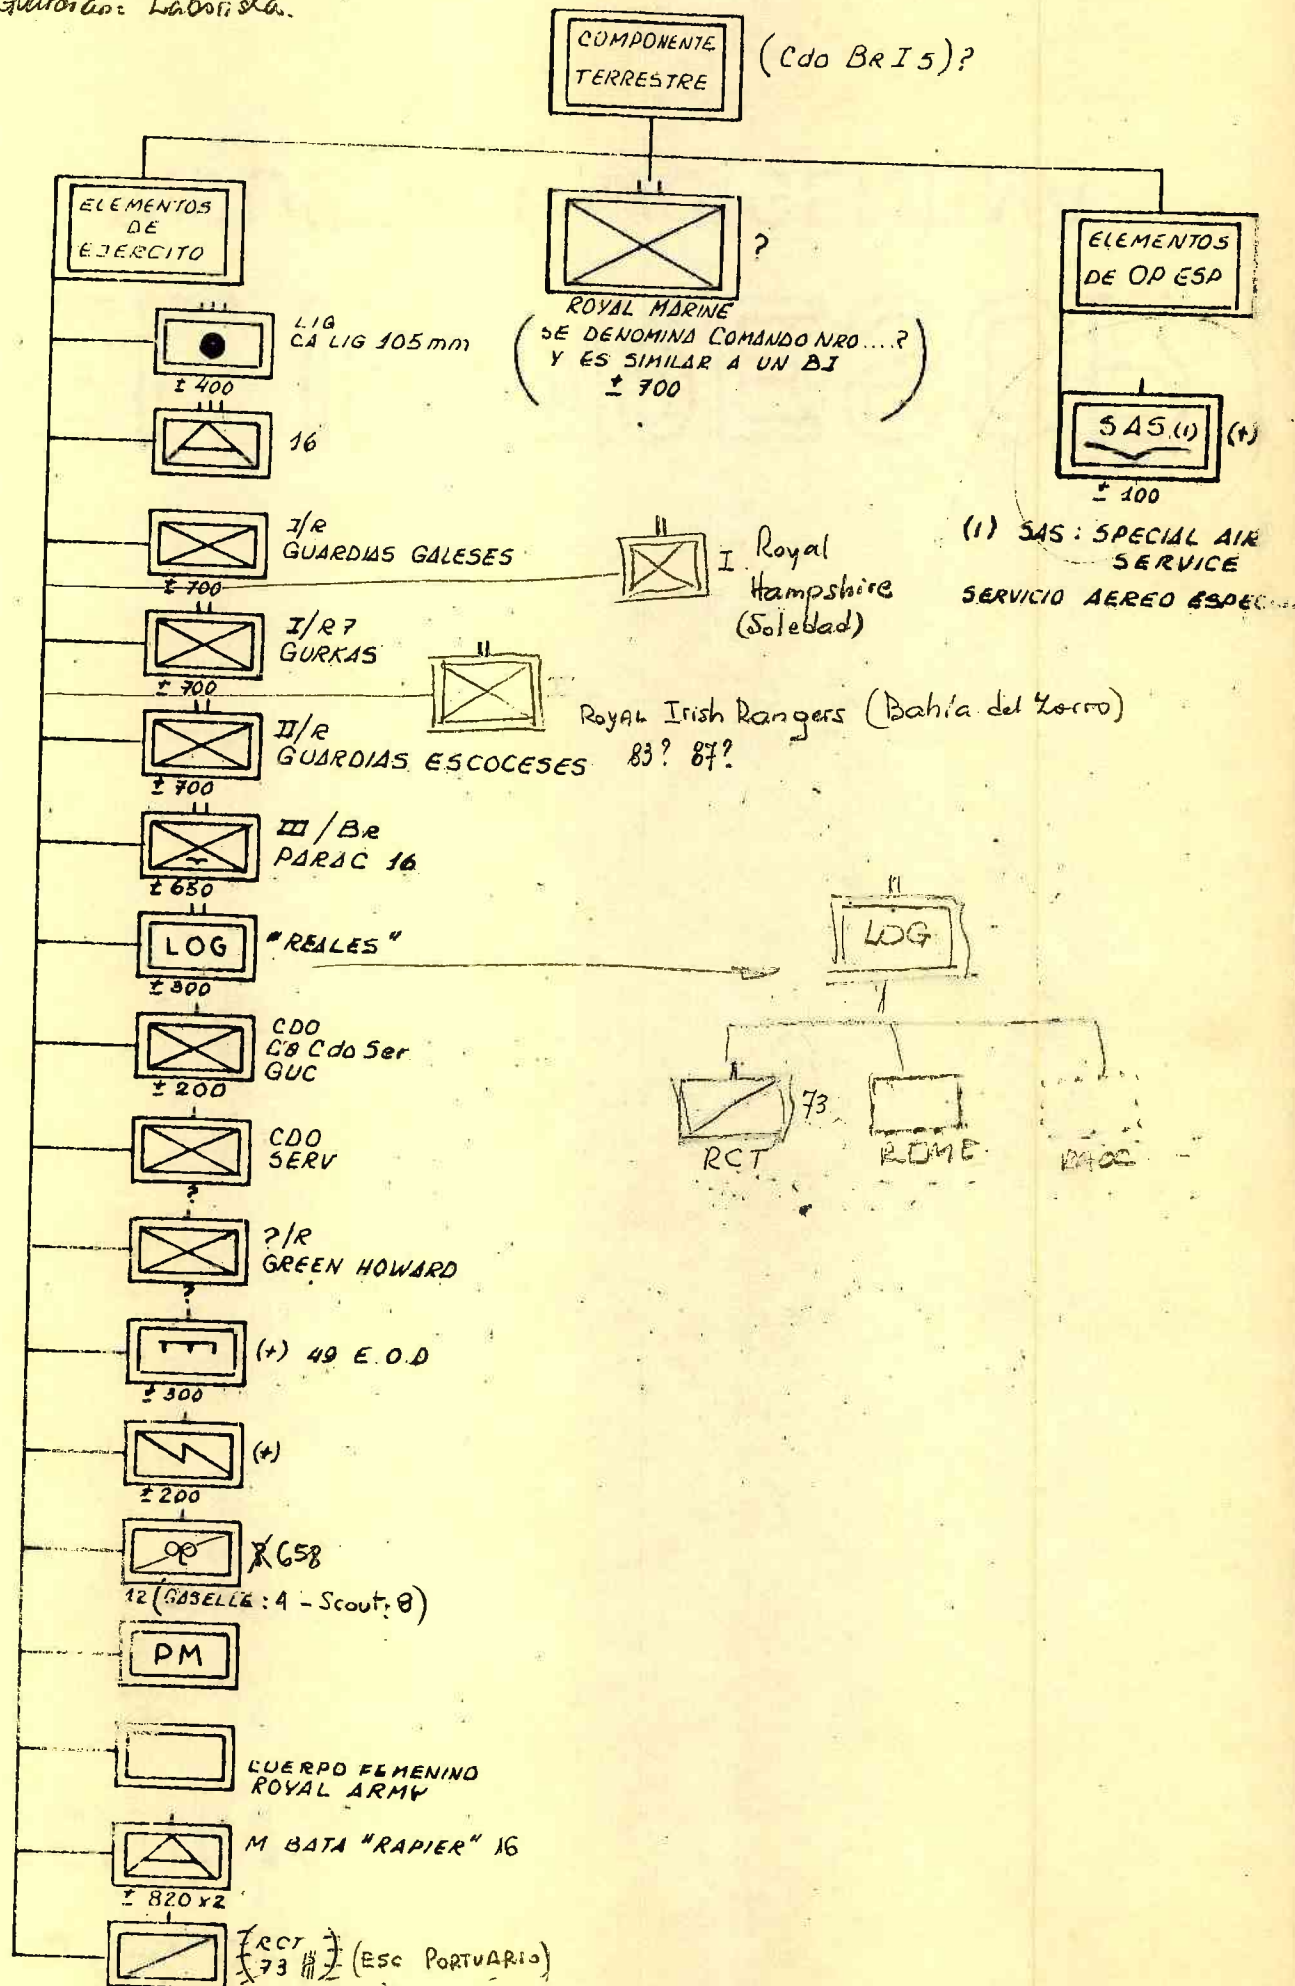 Laborista.
COMPONENTE
TERRESTRE
(Cdo BR I 5)?
ELEMENTOS
DE
EJERCITO
?
ROYAL MARINE
(SE DENOMINA COMANDO NRO....?
Y ES SIMILAR A UN BI
± 700)
ELEMENTOS
DE OP ESP
SAS (1) (+)
± 100
(1) SAS: SPECIAL AIR
SERVICE
SERVICIO AEREO
LIG
CA LIG 105 mm
± 400
16
I/R
GUARDIAS GALESES
± 700
I Royal
Hampshire
(Soledad)
I/R 7
GURKAS
± 700
Royal Irish Rangers (Bahía del Zorro)
83? 87?
II/R
GUARDIAS ESCOCESES
± 700
III/BR
PARAC 16
± 650
LOG "REALES"
± 300
LOG
73
RCT
REME
CDO
Ca Cdo Ser
GUC
± 200
CDO
SERV
?
?/R
GREEN HOWARD
?
(+) 49 E.O.D
± 300
(+)
± 200
658
12 (GASELLE: 4 - Scout: 8)
PM
CUERPO FEMENINO
ROYAL ARMY
M BATA "RAPIER" 16
± 820 x2
RCT
73
(ESC PORTUARIO)